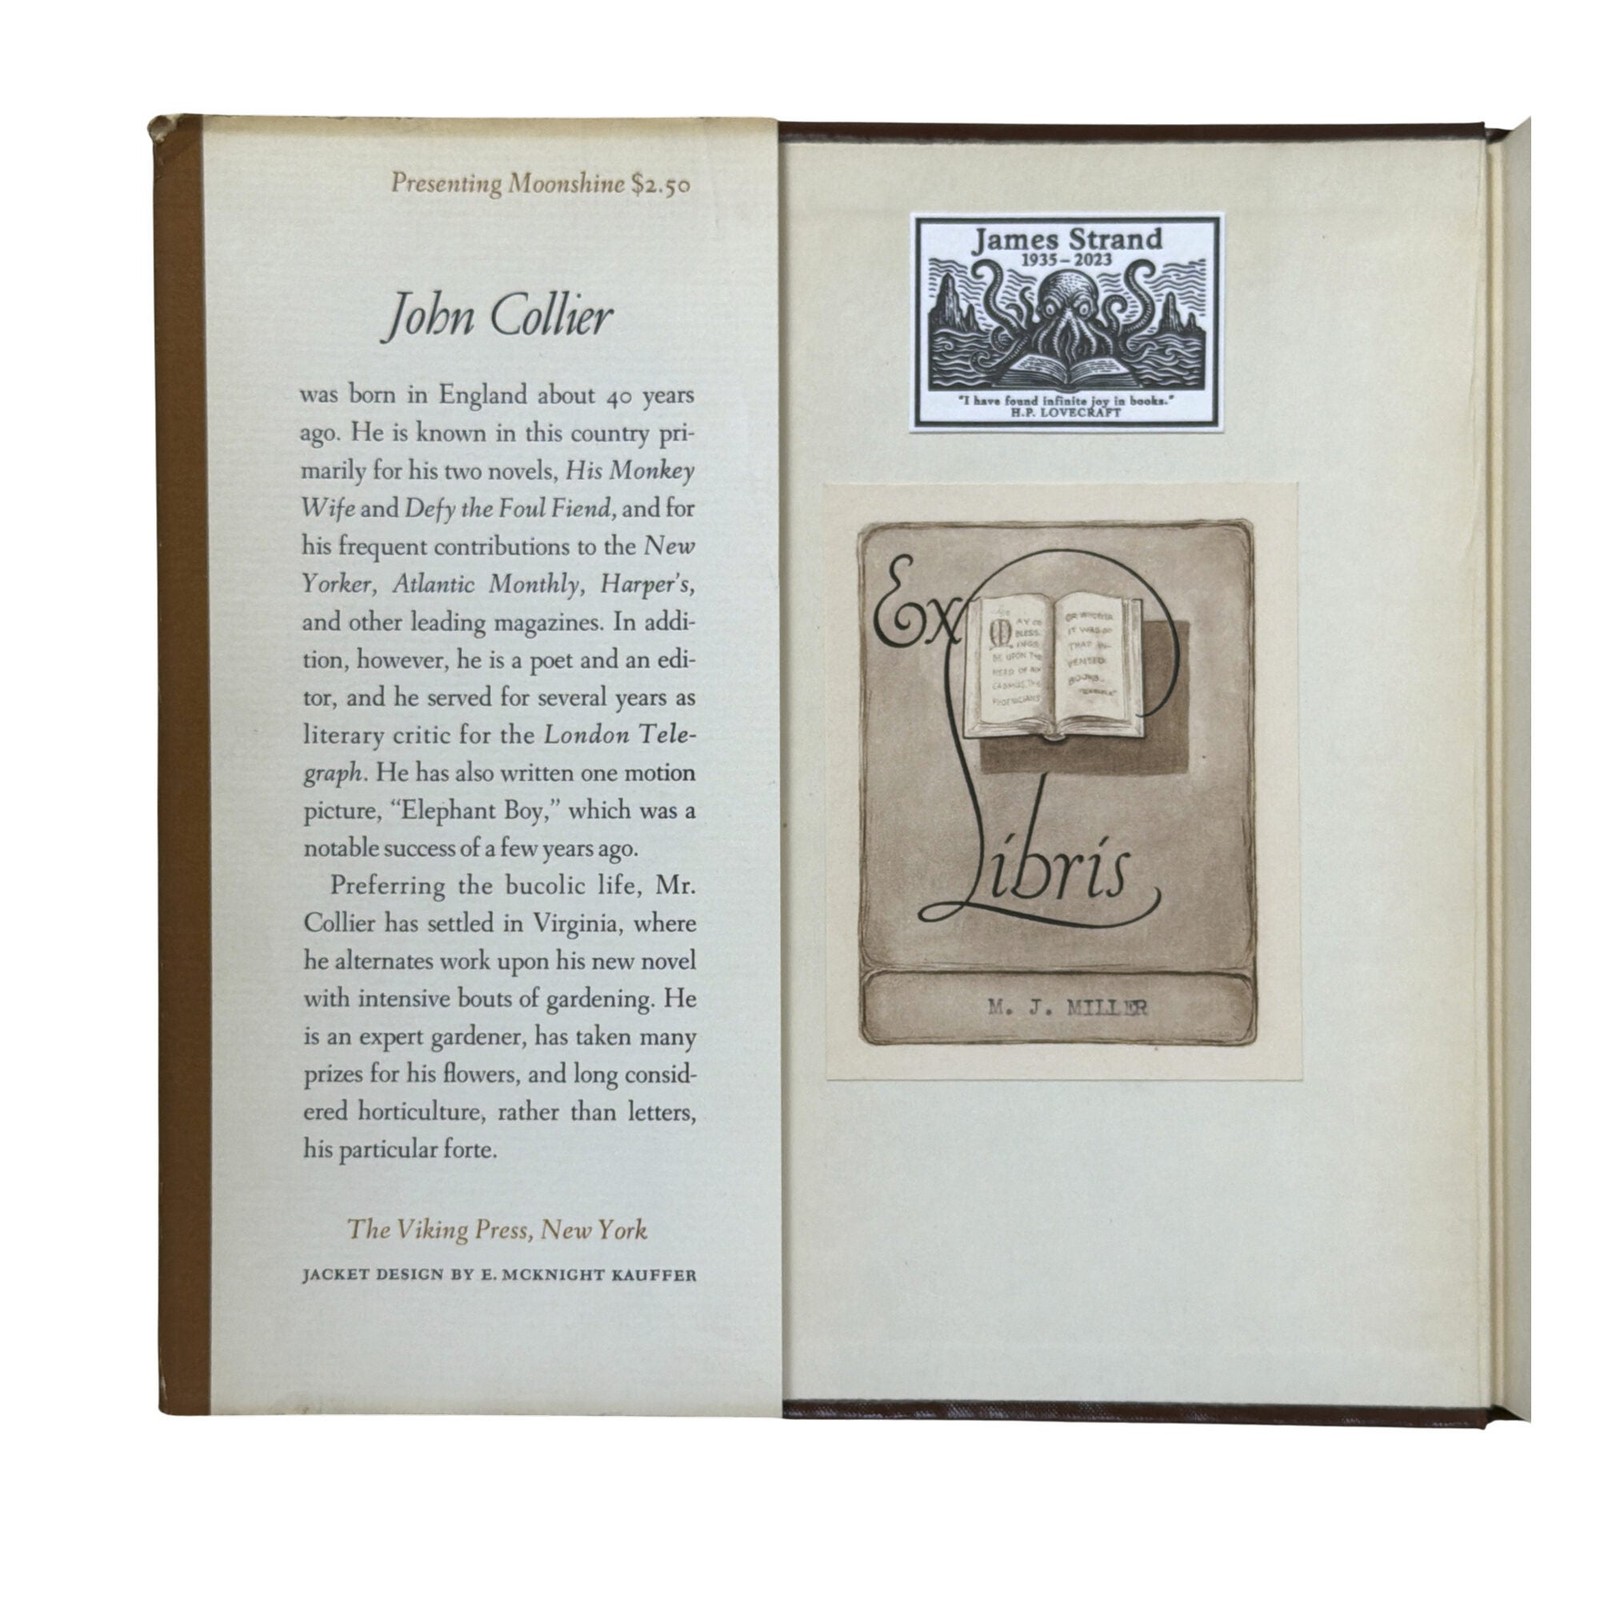 Presenting Moonshine $2.50
John Collier
was born in England about 40 years
ago. He is known in this country pri-
marily for his two novels, His Monkey
Wife and Defy the Foul Fiend, and for
his frequent contributions to the New
Yorker, Atlantic Monthly, Harper's,
and other leading magazines. In addi-
tion, however, he is a poet and an edi-
tor, and he served for several years as
literary critic for the London Tele-
graph. He has also written one motion
picture, “Elephant Boy,” which was a
notable success of a few years ago.
Preferring the bucolic life, Mr.
Collier has settled in Virginia, where
he alternates work upon his new novel
with intensive bouts of gardening. He
is an expert gardener, has taken many
prizes for his flowers, and long consid-
ered horticulture, rather than letters,
his particular forte.
The Viking Press, New York
JACKET DESIGN BY E. MCKNIGHT KAUFFER
James Strand
1935–2023
"I have found infinite joy in books."
H.P. LOVECRAFT
Ex
BLESS-
BE UPON THE
IT WAS
THAT IN-
VENTED
BOOKS.
Libris
M. J. MILLER